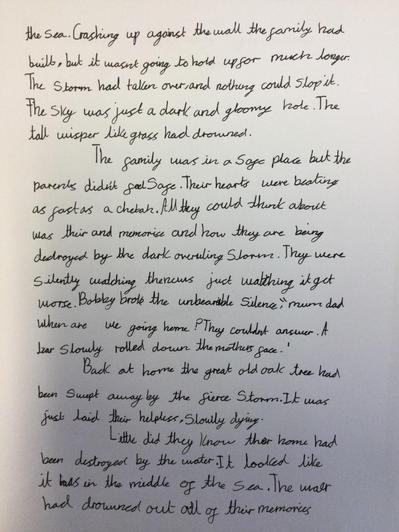 the Sea. Crashing up against the wall the family had
built, but it wasnt going to hold up for much longer.
The Storm had taken over and nothing could Stop it.
The Sky was just a dark and gloomy hole. The
tall wisper like grass had drowned.
The family was in a Safe place but the
parents didn't feel Safe. Their hearts were beating
as fast as a chetah. All they could think about
was their and memorise and how they are being
destroyed by the dark overuling Storm. They were
Silently watching thenews just watching it get
worse. Bobby broke the unbearable Silence, "mum dad
when are we going home? They couldnt answer. A
tear Slowly rolled down the mothers face.'
Back at home the great old oak tree had
been Swept away by the fierce Storm. It was
just laid their helpless, Slowly dying.
Little did they know ther home had
been destroyed by the water. It looked like
it was in the middle of the Sea. The water
had drowned out all of their memories